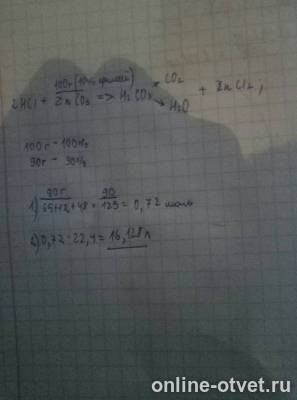 100г (10% примесей)
2HCl + ZnCO3 => H2CO3 CO2 H2O + ZnCl2
100г - 100%
90г - 90%
1) 90г / 65+12+48 = 90 / 125 = 0,72 моль
2) 0,72 · 22,4 = 16,128 л
online-otvet.ru